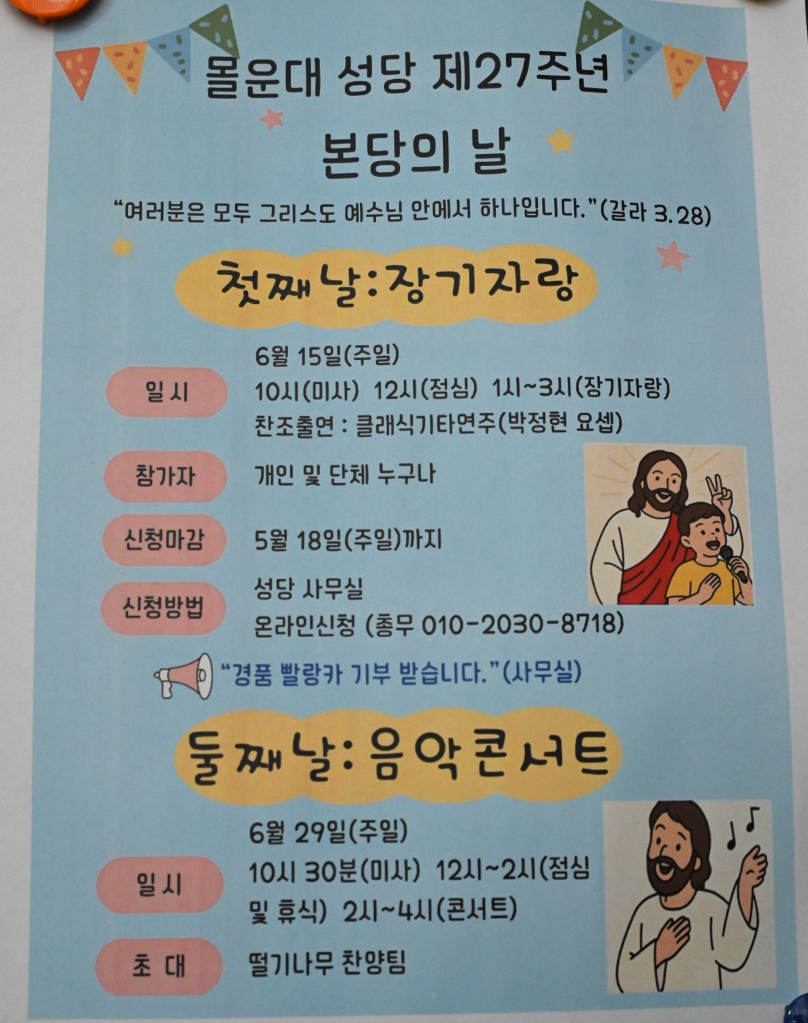 몰운대 성당 제27주년
본당의 날
“여러분은 모두 그리스도 예수님 안에서 하나입니다.”(갈라 3.28)
첫째날:장기자랑
일시
6월 15일(주일)
10시(미사) 12시(점심) 1시~3시(장기자랑)
찬조출연 : 클래식기타연주(박정현 요셉)
참가자
개인 및 단체 누구나
신청마감
5월 18일(주일)까지
신청방법
성당 사무실
온라인신청 (총무 010-2030-8718)
“경품 빨랑카 기부 받습니다.”(사무실)
둘째날:음악콘서트
일시
6월 29일(주일)
10시 30분(미사) 12시~2시(점심
및 휴식) 2시~4시(콘서트)
초 대
떨기나무 찬양팀